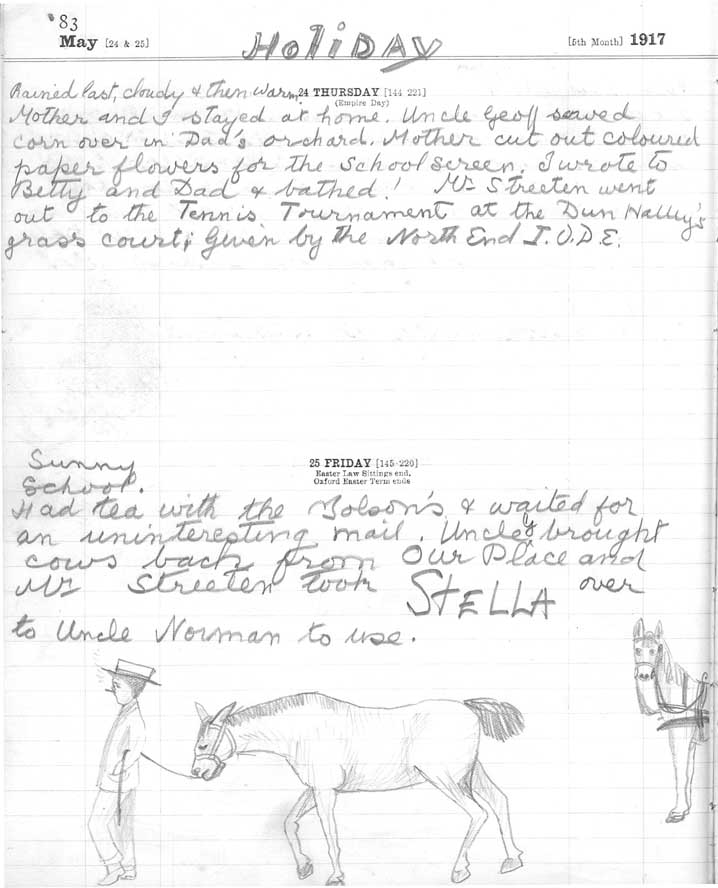 '83
May [24 & 25] HOLIDAY [5th Month] 1917
Rained last, cloudy & then warm. 24 THURSDAY [144-221]
(Empire Day)
Mother and I stayed at home. Uncle Geoff sowed
corn over in Dad's orchard. Mother cut out coloured
paper flowers for the School screen. I wrote to
Betty and Dad & bathed! Mr Streeten went
out to the Tennis Tournament at the Dun
grass court; Given by the North End I.O.D.E.
25 FRIDAY [145-220]
Easter Law Sittings end.
Oxford Easter Term ends
Sunny
School.
Had tea with the & waited for
an uninteresting mail. Uncle G brought
cows back from Our Place and
Mr Streeten took STELLA over
to Uncle Norman to use.